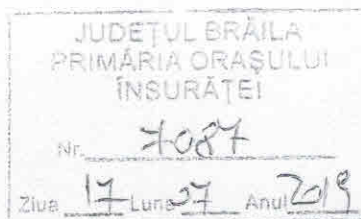 JUDEȚUL BRĂILA
PRIMĂRIA ORAȘULUI
ÎNSURĂȚEI
Nr. 7087
Ziua 17 Luna 07 Anul 2019